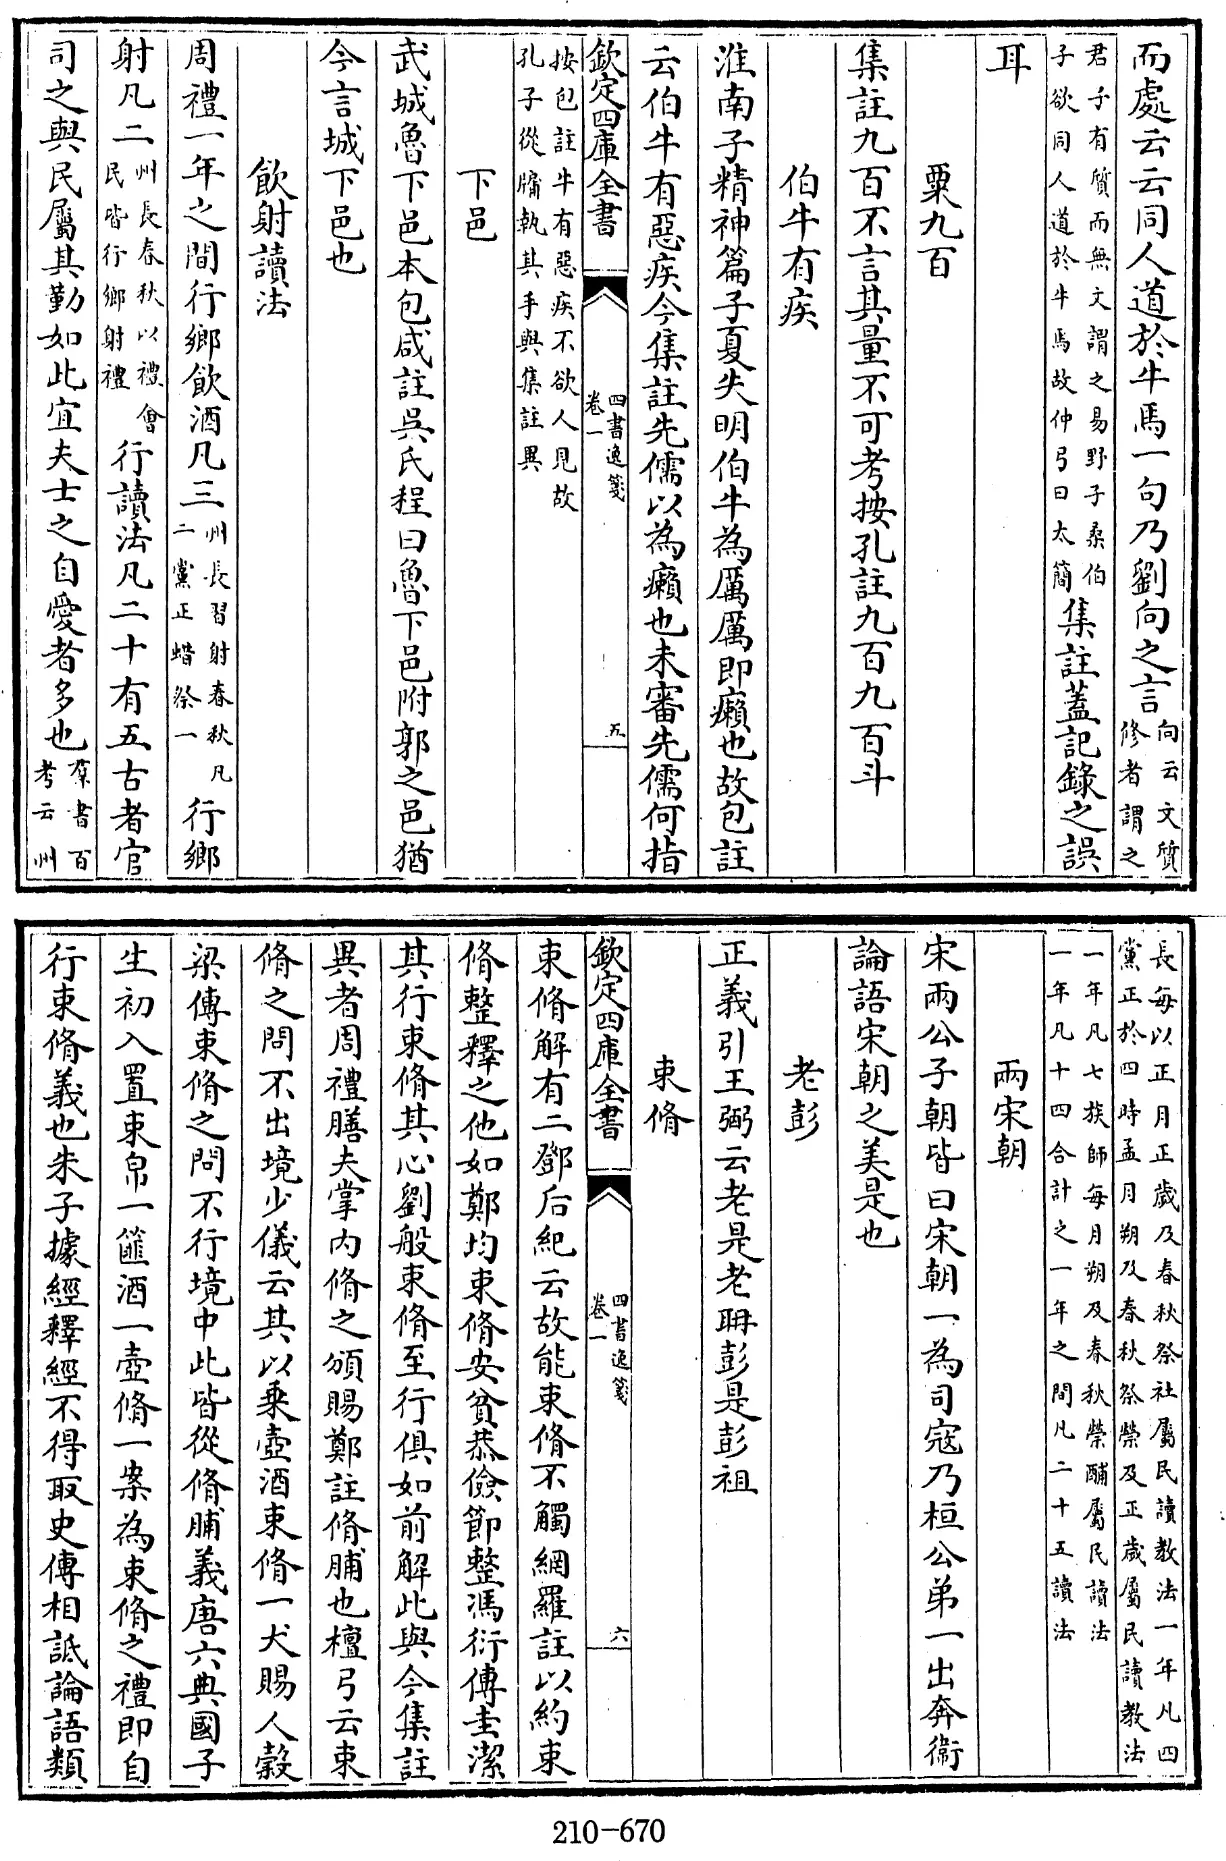 而處云云同人道於牛馬一句乃劉向之言向云文質修者謂之
君子有質而無文謂之易野子桑伯子欲同人道於牛馬故仲弓曰太簡集註蓋記錄之誤
耳
粟九百
集註九百不言其量不可考按孔註九百九百斗
伯牛有疾
淮南子精神篇子夏失明伯牛為厲厲即癩也故包註
云伯牛有惡疾今集註先儒以為癩也未審先儒何指
欽定四庫全書
四書逸箋
卷一
五
按包註牛有惡疾不欲人見故孔子從牖執其手與集註異
下邑
武城魯下邑本包咸註吳氏程曰魯下邑附郭之邑猶
今言城下邑也
飲射讀法
周禮一年之間行鄉飲酒凡三州長習射春秋凡二黨正蜡祭一行鄉
射凡二州長春秋以禮會民皆行鄉射禮行讀法凡二十有五古者官
司之與民屬其勤如此宜夫士之自愛者多也羣書百考云州
長每以正月正歲及春秋祭社屬民讀教法一年凡四黨正於四時孟月朔及春秋祭禜及正歲屬民讀教法
一年凡七族師每月朔及春秋禜酺屬民讀法一年凡十四合計之一年之間凡二十五讀法
兩宋朝
宋兩公子朝皆曰宋朝一為司寇乃桓公弟一出奔衞
論語宋朝之美是也
老彭
正義引王弼云老是老聃彭是彭祖
束脩
欽定四庫全書
四書逸箋
卷一
六
束脩解有二鄧后紀云故能束脩不觸網羅註以約束
脩整釋之他如鄭均束脩安貧恭儉節整馮衍傳圭潔
其行束脩其心劉般束脩至行俱如前解此與今集註
異者周禮膳夫掌內脩之頒賜鄭註脩脯也檀弓云束
脩之問不出境少儀云其以乘壺酒束脩一犬賜人穀
梁傳束脩之問不行境中此皆從脩脯義唐六典國子
生初入置束帛一篚酒一壺脩一案為束脩之禮即自
行束脩義也朱子據經釋經不得取史傳相詆論語類
210-670